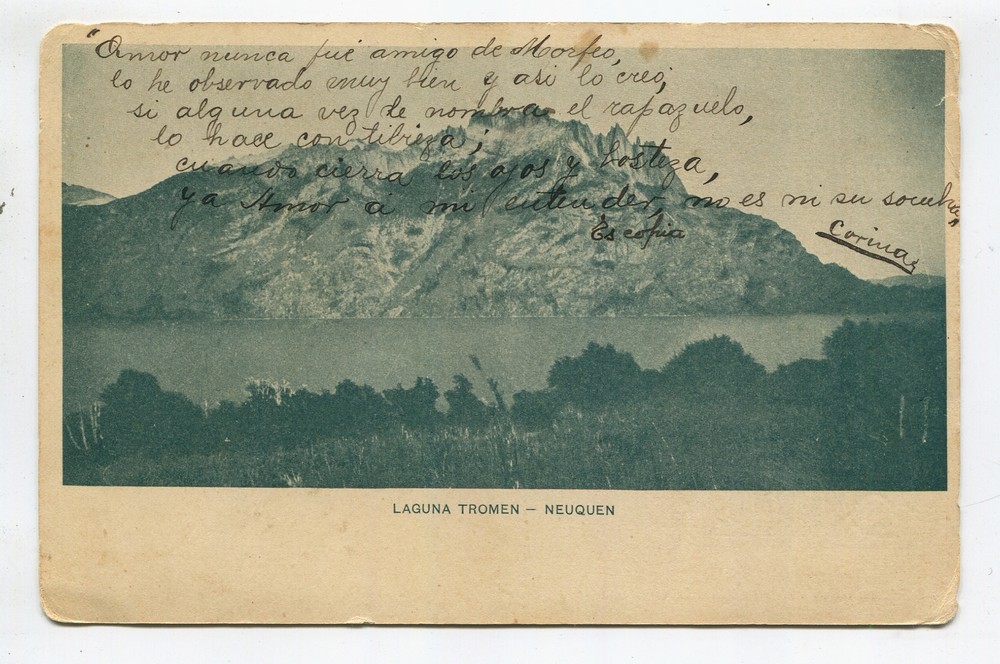 "Amor nunca fué amigo de Morfeo,
lo he observado muy bien y asi lo creo,
si alguna vez le nombra el rapazuelo,
lo hace con tibieza;
cuando cierra los ojos y bosteza,
ya Amor a mi entender, no es ni su sombra"
Es copia
Corina
LAGUNA TROMEN — NEUQUEN